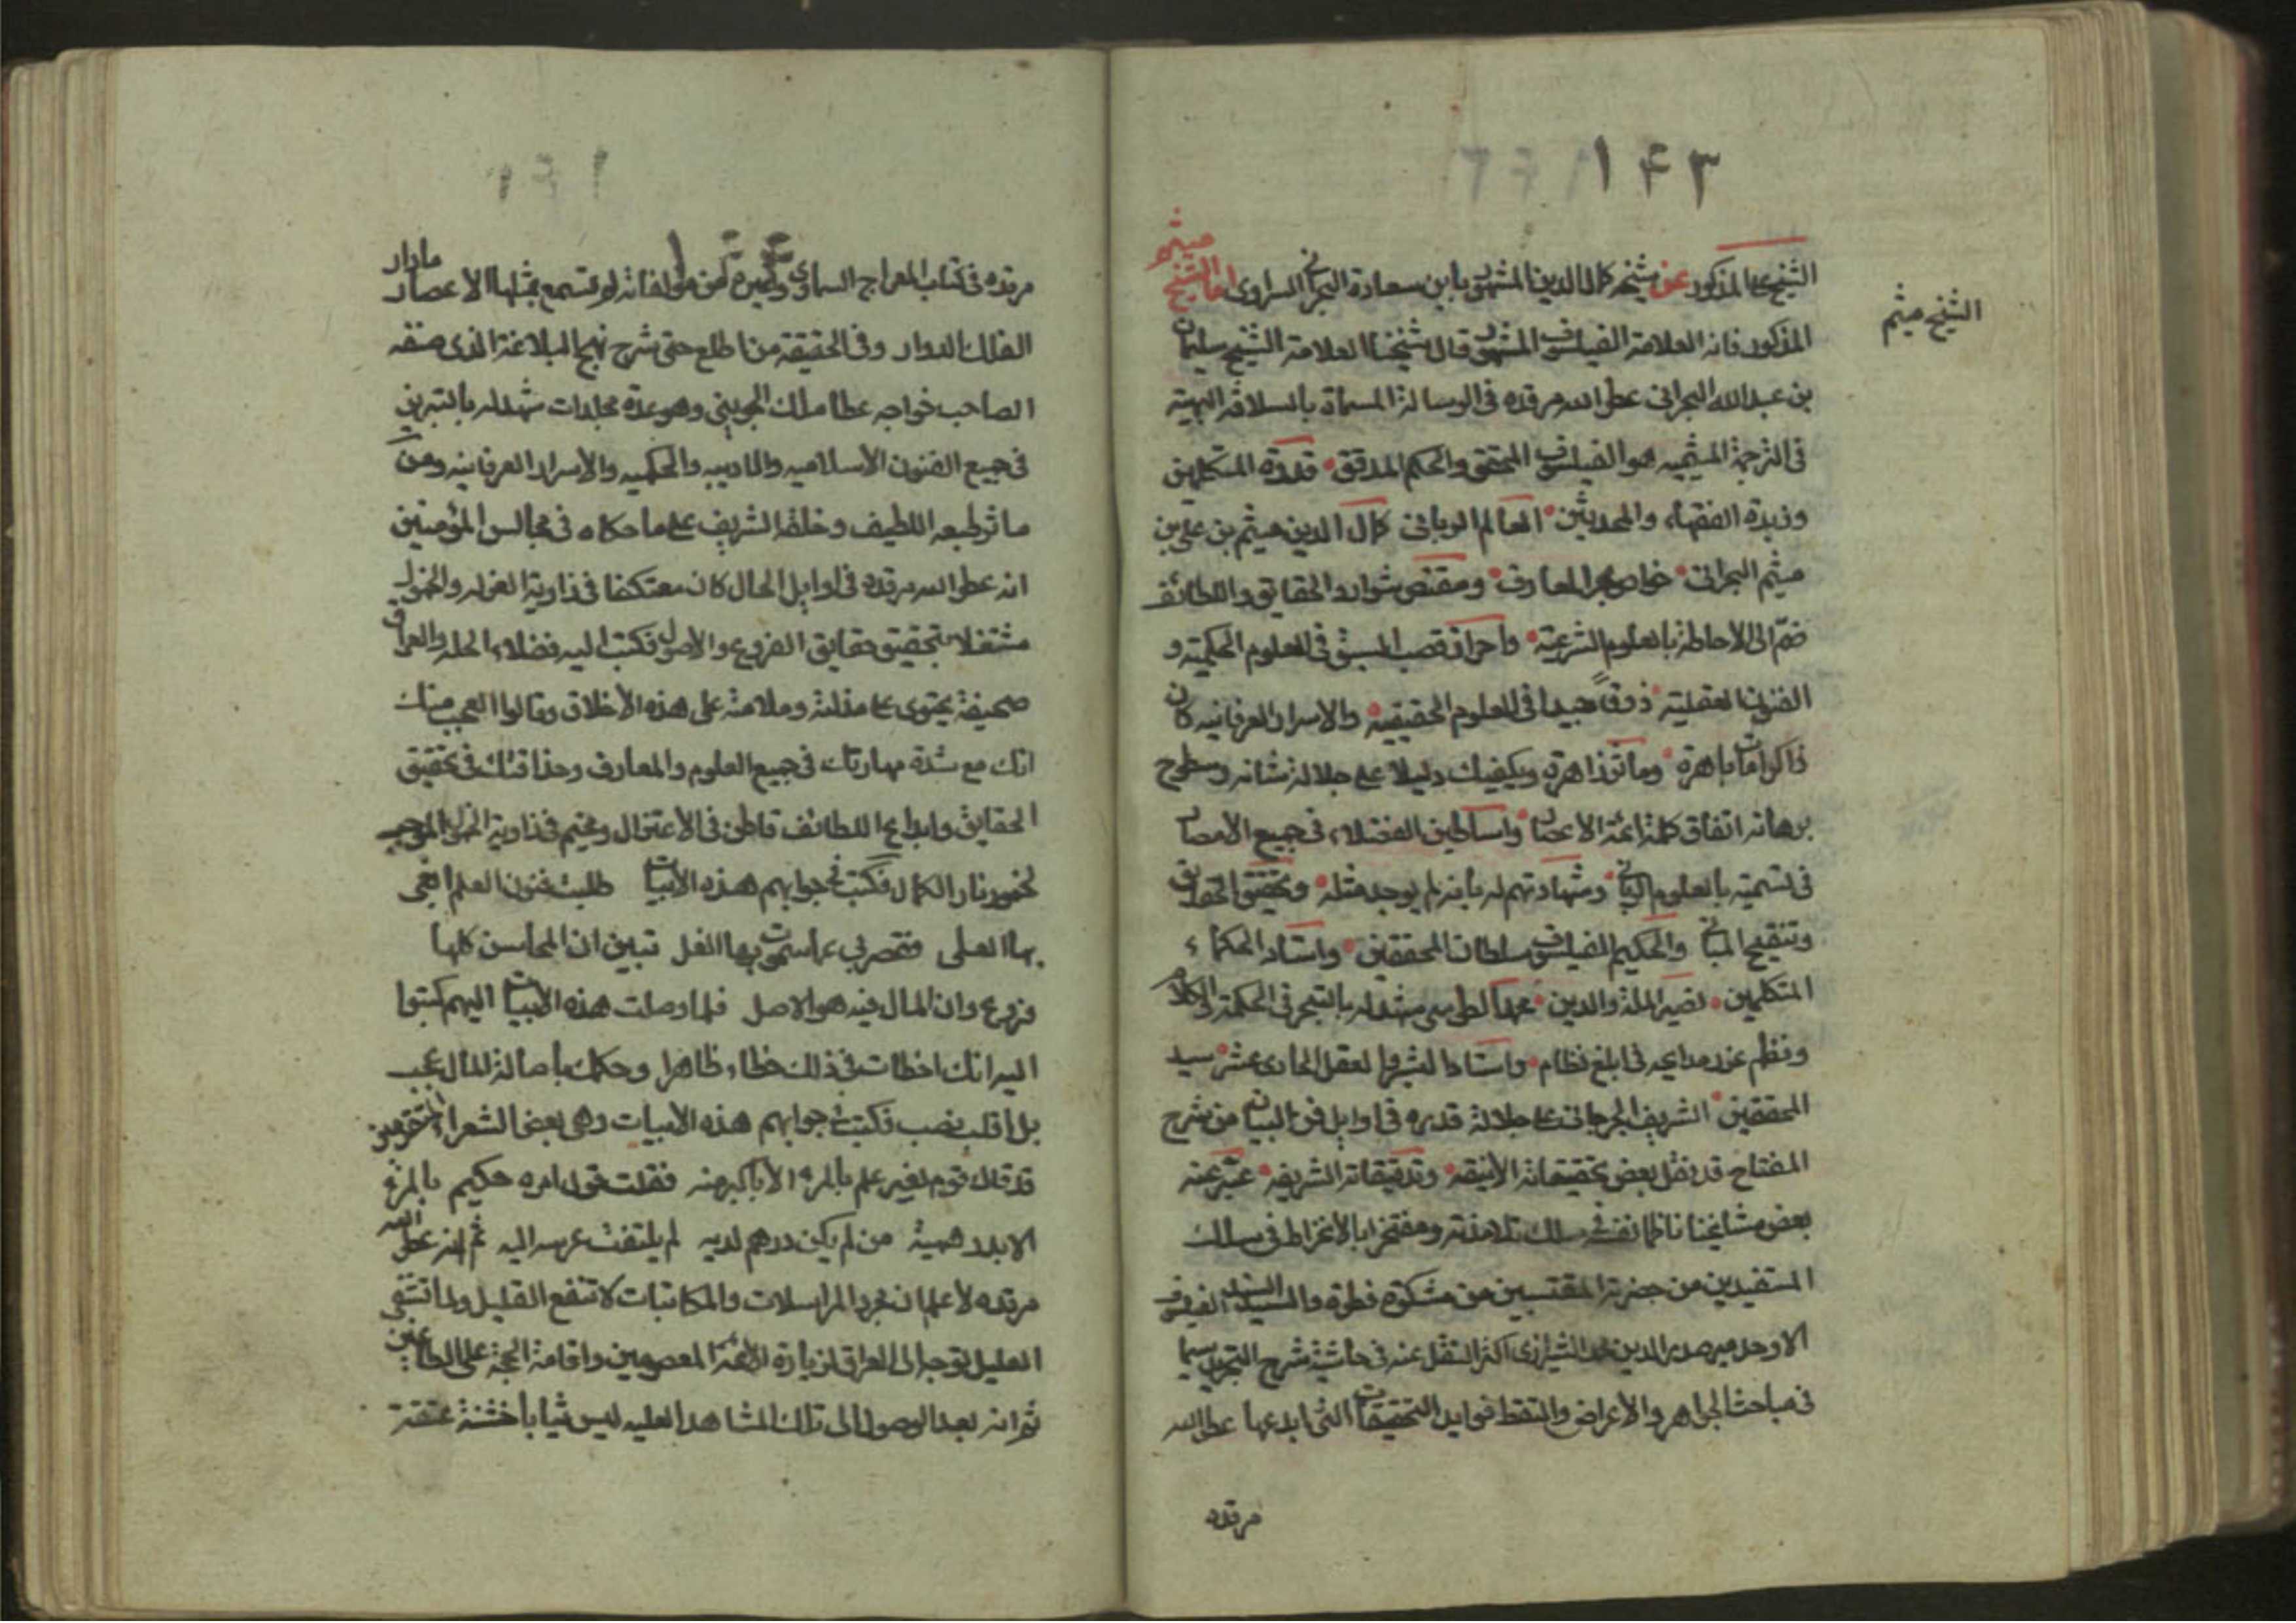 ١٤٣
الشيخ ميثم
الشيخ علي المذكور عن شيخه كمال الدين المشهور بابن سعادة البحراني الستراوي اما الشيخ ميثم
المذكور فانه العلامة الفيلسوف المشهور قال شيخنا العلامة الشيخ سليمان
بن عبدالله البحراني عطر الله مرقده في الرسالة المسماة بالسلافة البهية
في الترجمة الميثمية هو الفيلسوف المحقق والحكيم المدقق قدوة المتكلمين
وزبدة الفقهاء والمحدثين العالم الرباني كمال الدين ميثم بن علي بن
ميثم البحراني غواص بحر المعارف ومقتنص شوارد الحقايق واللطائف
ضم الى الاحاطة بالعلوم الشرعية واحراز قصب السبق في العلوم الحكمية و
الفنون العقلية ذوقا جيدا في العلوم الحقيقية والاسرار العرفانيه كان
ذا كرامات باهرة وماثر زاهرة ويكفيك دليلا على جلالة شانه وسطوح
برهانه اتفاق كلمة ائمة الاعصار واساطين الفضلاء في جميع الامصار
في تسميته بالعلوم الرباني وشهادتهم له بانه لم يوجد مثله وتحقيق الحقايق
وتنقيح المباني والحكيم الفيلسوف سلطان المحققين واستاد الحكماء
المتكلمين نصير الملة والدين محمد الطوسي شهد له بالتبحر في الحكمة والكلام
ونظم غرر مدايحه في ابلغ نظام واستاد البشر والعقل الحادى عشر سيد
المحققين الشريف الجرجاني على جلالة قدره في اوايل فن البيان من شرح
المفتاح قد نقل بعض تحقيقاته الأنيقه وتدقيقاته الشريفه عبر عنه
بعض مشايخنا ناظما نفسه في سلك تلامذته ومفتخرا بالانخراط في سلك
المستفيدين من حضرته المقتبسين من مشكوة فطرته والسيد السند الفيلسوف
الاوحد مير صدر الدين محمد الشيرازى اكثر النقل عنه في حاشية شرح التجريد سيما
في مباحث الجواهر والاعراض والتقط فرايد التحقيقات التي ابدعها عطر الله
مرقده
مرقده في كتاب المعراج السماوي وغيره من مؤلفاته لم تسمع بمثلها الاعصار مادار
الفلك الدوار وفي الحقيقة من اطلع على شرح نهج البلاغة الذى صنفه
الصاحب خواجه عطا ملك الجويني وهو عدة مجلدات شهد له بالتبريز
في جميع الفنون الأسلاميه والادبيه والحكميه والاسرار العرفانيه ومن
ماثر طبعه اللطيف وخلقه الشريف على ما حكاه في مجالس المؤمنين
انه عطر الله مرقده في اوايل الحال كان معتكفا في زاوية العزله والخمول
مشتغلا بتحقيق حقايق الفروع والاصول فكتب اليه فضلاء الحله والعراق
صحيفة يحتوى على عذله وملامته على هذه الأخلاق وقالوا العجب منك
انك مع شدة مهارتك في جميع العلوم والمعارف وحذاقتك في تحقيق
الحقايق وابداع اللطائف قاطن في الأعتزال ومخيم في زاوية الخمول الموجب
لخمود نار الكمال فكتب في جوابهم هذه الأبيات طلبت فنون العلم ابغي
بها العلى فقصر بي عما سموت بها القل تبين ان المحاسن كلها
فروع وان المال فيه هو الاصل فلما وصلت هذه الأبيات اليهم كتبوا
اليه انك اخطات في ذلك خطاء ظاهرا وحكمك بأصالة المال عجب
بل اقلب تصب فكتب في جوابهم هذه الأبيات وهي لبعض الشعراء المتقدمين
قد قال قوم بغير علم ما المرء الا باكبريه فقلت قول امرء حكيم ما المرء
الا بدرهميه من لم يكن درهم لديه لم يلتفت عرسه اليه ثم انه عطر الله
مرقده لما علم ان مجرد المراسلات والمكاتبات لا تنفع القليل ولا تشفى
العليل توجه الى العراق لزيارة الأئمة المعصومين واقامة الحجة على الطاعنين
ثم انه بعد الوصول الى تلك المشاهد العليه لبس ثيابا خشنة عتيقة